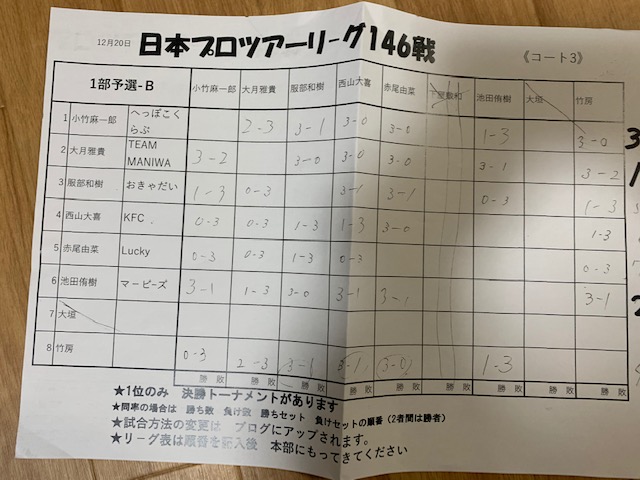 12月20日 日本プロツアーリーグ146戦 《コート3》
1部予選-B 小竹麻一郎 大月雅貴 服部和樹 西山大喜 赤尾由菜 池田侑樹 大垣 竹房
1 小竹麻一郎 へっぽこくらぶ 2-3 3-1 3-0 3-0 1-3 3-0 3
2 大月雅貴 TEAM MANIWA 3-2 3-0 3-0 3-0 3-1 3-2 1
3 服部和樹 おきゃだい 1-3 0-3 3-1 3-1 0-3 1-3
4 西山大喜 KFC 0-3 0-3 1-3 1-3 3-0 1-3
5 赤尾由菜 Lucky 0-3 0-3 1-3 0-3 0-3
6 池田侑樹 マーピーズ 3-1 1-3 3-0 3-1 3-1 3-1 2
7 大垣
8 竹房 0-3 2-3 3-1 3-1 (3-0) 1-3
勝 敗 勝 敗 勝 敗 勝 敗 勝 敗 勝 敗 勝 敗 勝 敗 勝 敗
★1位のみ 決勝トーナメントがあります
★同率の場合は 勝ち数 負け数 勝ちセット 負けセットの順番（2者間は勝者）
★試合方法の変更は ブログにアップされます。
★リーグ表は順番を記入後 本部にもってきてください